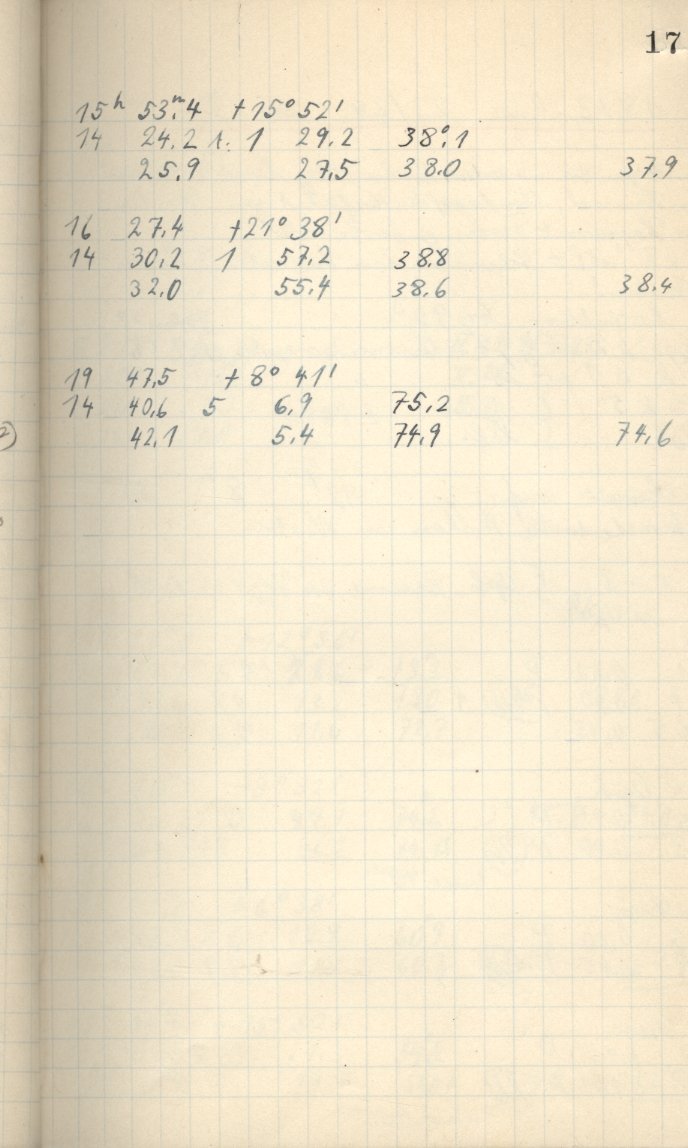 17
15ʰ 53ᵐ.4 +15° 52'
14 24.2 1. 1 29.2 38°.1
25.9 27.5 38.0 37.9
16 27.4 +21° 38'
14 30.2 1 57.2 38.8
32.0 55.4 38.6 38.4
19 47.5 + 8° 41'
14 40.6 5 6.9 75.2
42.1 5.4 74.9 74.6